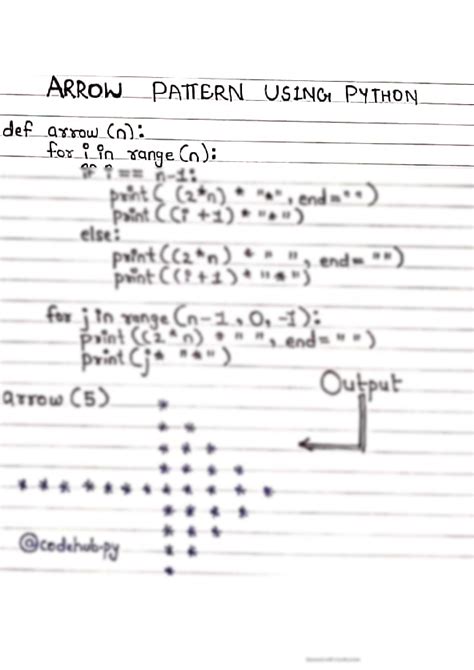 ARROW PATTERN USING PYTHON
def arrow (n):
for i in range (n):
if i == n-1:
print( (2*n) * "*", end="")
print((i +1) * "*")
else:
print((2*n) * " ", end= "")
print((i+1) * "*")
for j in range (n-1, 0, -1):
print((2*n) * " ", end= "")
print(j* "*")
arrow (5)
Output
*
* *
* * *
* * * *
* * * * * * * * * * * *
* * * *
* * *
* *
*
@codehub-py